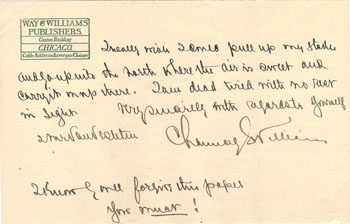 WAY & WILLIAMS
PUBLISHERS.
Caxton Building
CHICAGO.
Cable Address Leeroyus Chicago
I really wish I could pull up my stakes
and go up to the north where the air is sweet and
carry it on up there. I am dead tired with no rest
in sight
Very sincerely with regards to yourself
& Mr
Chauncey L Williams
I know you will forgive this paper
You must!